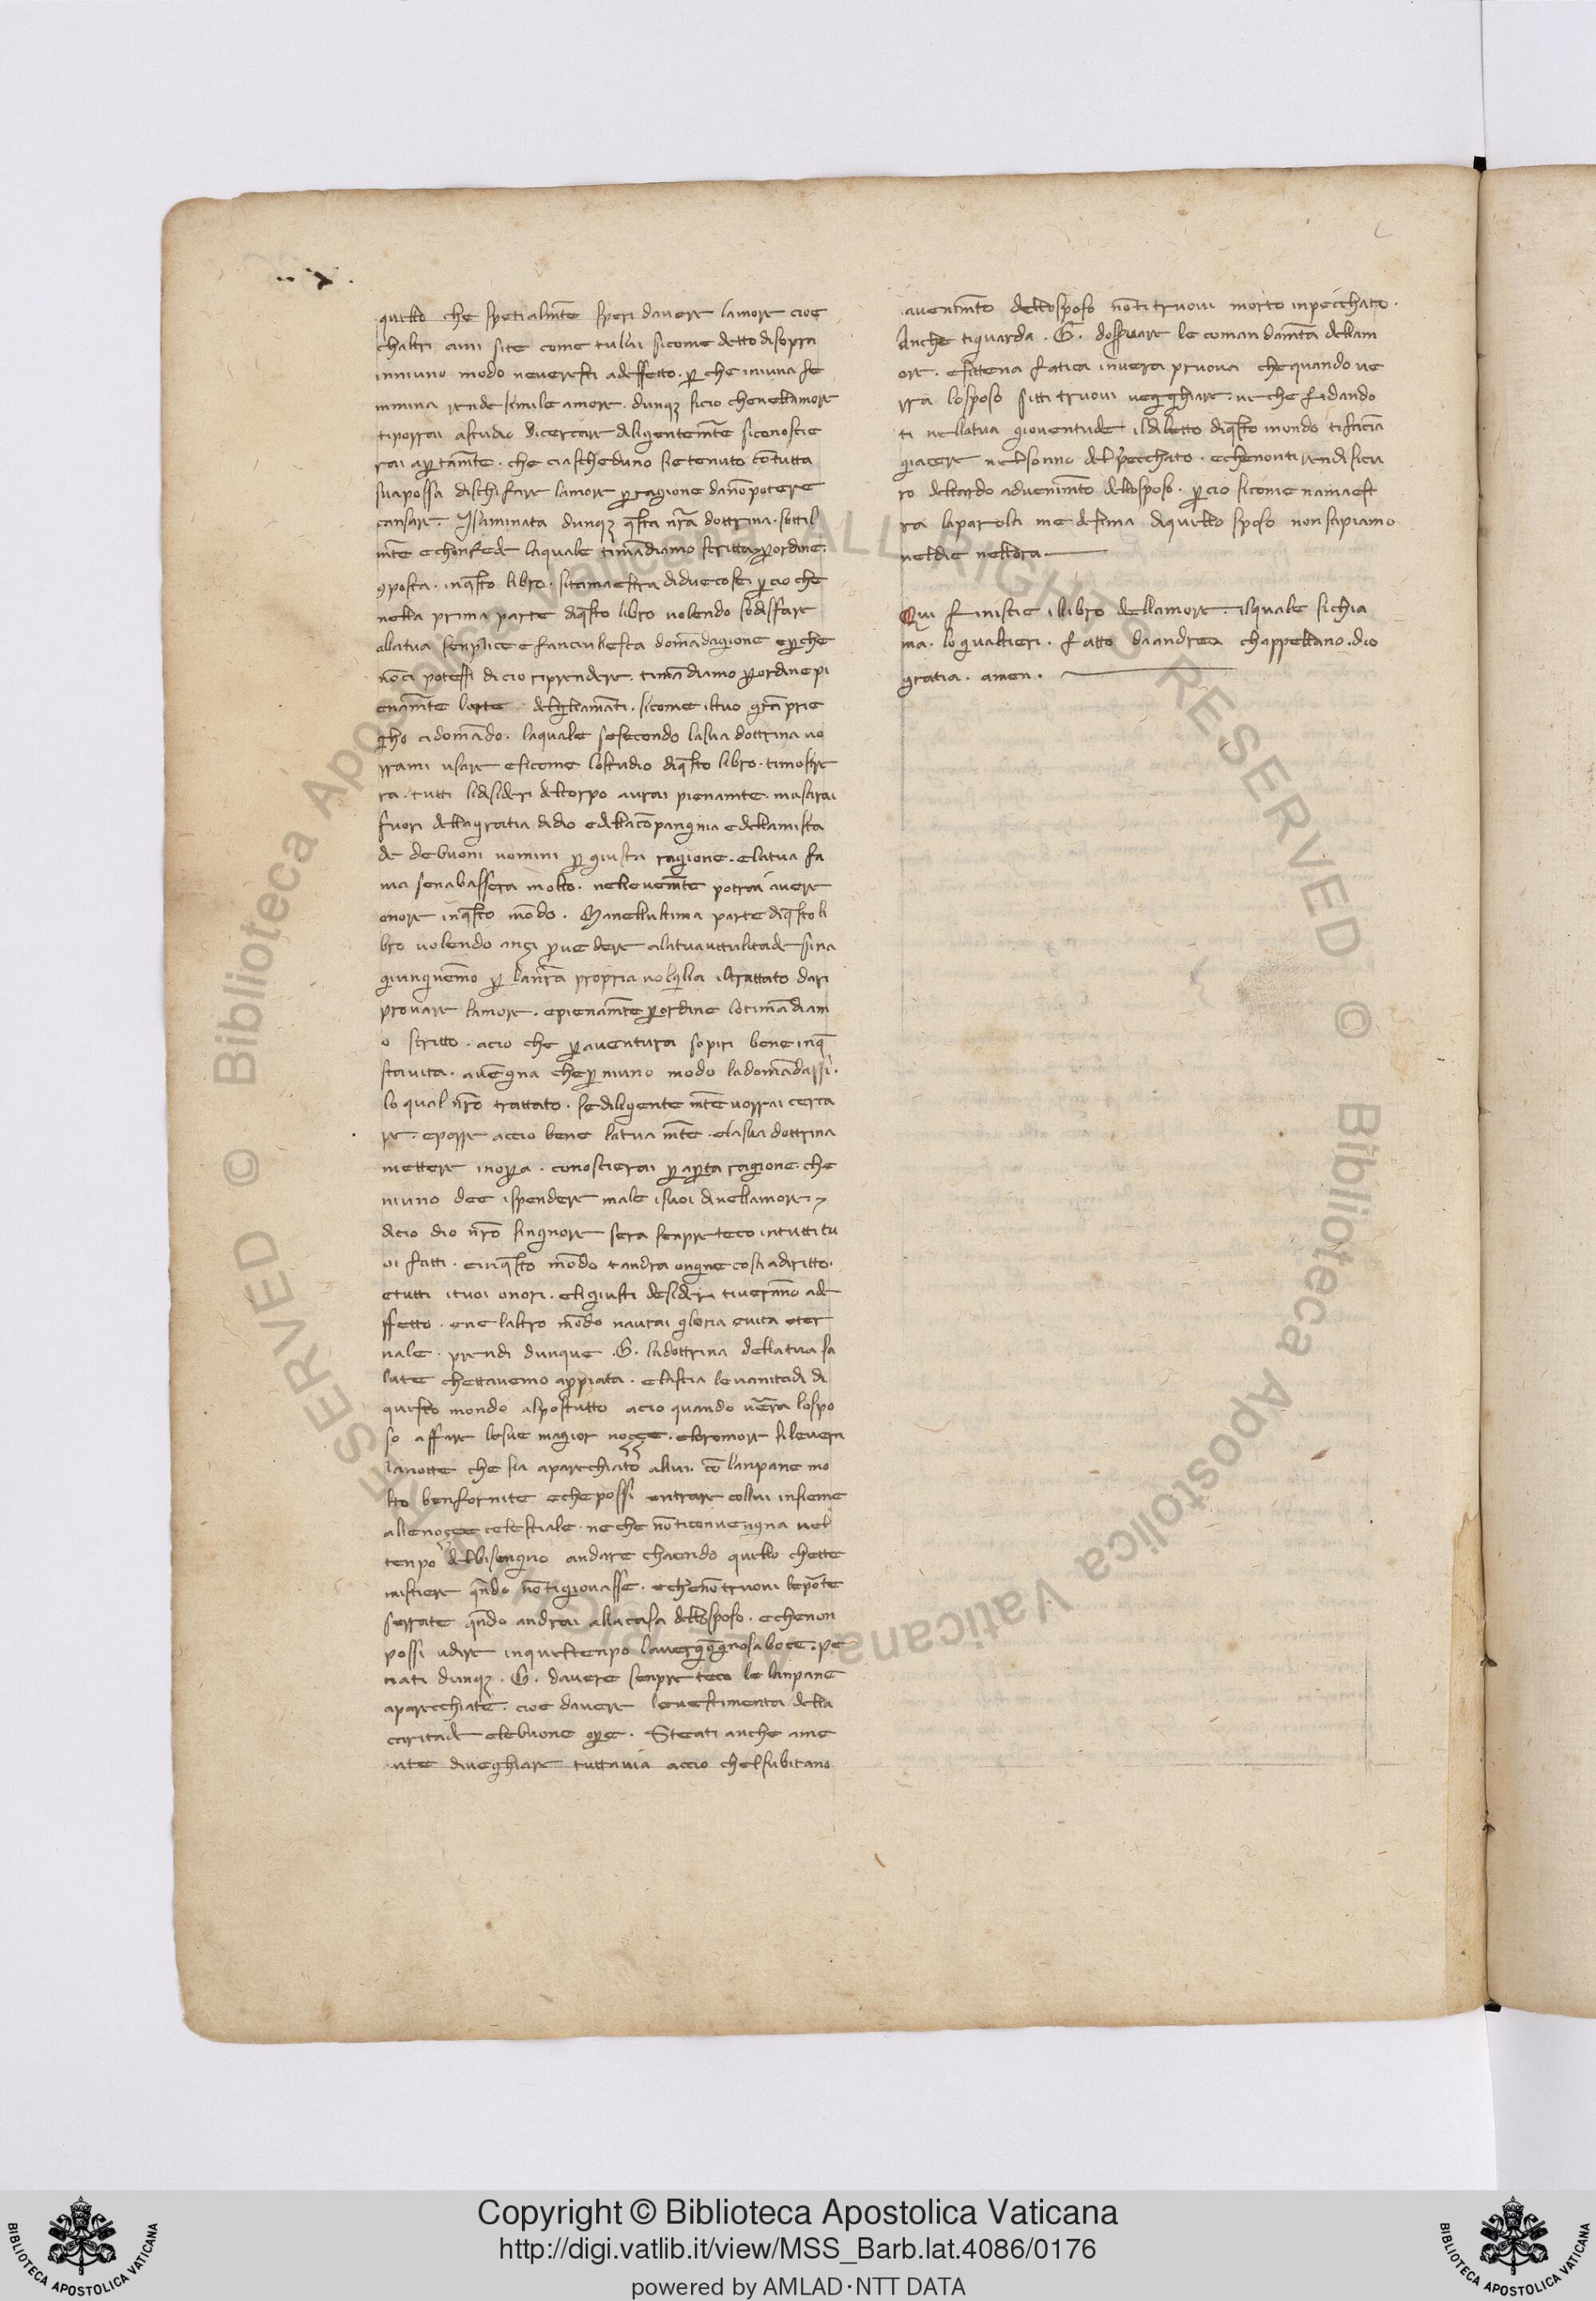 quello che spetialmēte speri davere lamore cioe
chaltri ami site come tullui sicome detto disopra
inniuno modo neveresti adeffetto. ꝑche niuna fe
mmina rende simile amore. dunqꝫ sicio chenellamore
tiporrai astudio dicercare diligentemēte siconoscie
rai aꝑtamēte. che ciascheduno sietenuto cōtutta
suapossa dischifare lamore ꝑragione danōpotere
cansare. Isaminata dunqꝫ q̄sta nr̄a dottrina. sottil
mēte echonfede laquale timādiamo scritta ꝑordine.
ꝯposta. inq̄sto libro. sitamaestra didue cose. ꝑcio che
nella prima parte diq̄sto libro volendo sodisfare
allatua senplice efanciullesca domādagione eꝑche
nōci potessi dicio riprendere. timādiamo ꝑordine pi
enamēte larte degliamāti. sicome iltuo grā prie
gho cidomādo. laquale sesecondo lasua dottrina vo
rrami usare esicome lostudio diq̄sto libro. timosterr
ra. tutti lidisideri delcorpo avrai pienamēte. musarai
fuori dellagratia didio edellacōpangnia edellamista
de debuoni uomini ꝑ giusta ragione. elatua fa
ma senabassera molto. nelievemēte potrai avere
onore inq̄sto mōdo. Manellultima parte diq̄stoli
bro volendo anzi ꝓvedere alatuauttulitade sina
quinquemo ꝑ lanr̄a propria volglia iltrattato dari
provare lamore. epienamēte ꝑordine lotimādiam
o scritto. acio che ꝑaventura sopiri bene inq̄
stavita. avēgna cheꝑniuno modo ladomādassi.
lo qual nr̄o trattato. sediligente mēte vorrai cerca
re. eporre accio bene latua mēte. elasua dottrina
mettere inoꝑa. conoscierai ꝑaꝑta ragione. che
niuno dee ispendere male isuoi di nellamore.
dicio dio nr̄o singnore sera senpre teco intutti tu
oi fatti. einq̄sto mōdo tandra ongne cosa adiritto.
etutti ituoi onori. eligiusti desideri tiverāno ade
ffetto. ene laltro mōdo navrai gloria evita eter
nale. prendi dunque .G. ladottrina dellatua sa
lute chettavemo aꝑpiata. elascia levanitadi di
questo mondo alpostutto acio quando verra lospo
so affare lesue magior nozze. eloromore silevera
lanotte che sia aparechiato allui. cō lanpane mo
lto benfornite echepossi entrare collui insieme
allenozze celestiale. neche nōticonvengna nel
tenpo delbisongno andare chaendo quello chette
mistiere qn̄do nōtigiovasse. echenōtruovi leporte
serrate qn̄do andrai allacasa dellosposo. echenon
possi udire inqueltenpo lavergongnosaboce. pe
nati dunqꝫ .G. davere senpre teco le lanpane
aparecchiate. cioe davere levestimenta della
caritade elebuone oꝑe. Stecati anche ame
nte diveghiare tuttavia accio chelsubitano
avenimēto dellosposo nōti truovi morto inpecchato.
Anche tiguarda .G. dosservare le comandamēta dellam
ore. esittena fatica invera pruova chequando ve
rra losposo sitti truovi vegghiare. ne che fidando
ti nellatua gioventude ildiletto diq̄sto mondo tifaccia
giacere nelsonno delpecchato. echenonti rendi sicu
ro deltardo advenimēto dellosposo. ꝑcio sicome namaest
ra laparola medesima diquello sposo non sapiamo
neldie nellora
Qui finiscie illibro dellamore. ilquale sichia
ma. lo gualtieri. fatto da andrea chappellano. dio
gratia. amen.
© Biblioteca Apostolica Vaticana ALL RIGHTS RESERVED © Biblioteca Apostolica Vaticana ALL RIGHTS RESERVED
Copyright © Biblioteca Apostolica Vaticana
http://digi.vatlib.it/view/MSS_Barb.lat.4086/0176
powered by AMLAD·NTT DATA
BIBLIOTECA APOSTOLICA VATICANA
BIBLIOTECA APOSTOLICA VATICANA